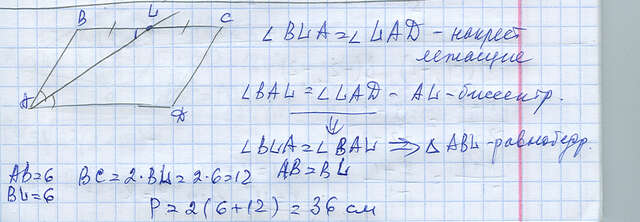 B L C
A D
∠BLA = ∠LAD - накрест
лежащие
∠BAL = ∠LAD - AL - биссектр.
⇓
∠BLA = ∠BAL ⇒ △ABL - равнобедр.
AB = BL
AB = 6
BL = 6
BC = 2 · BL = 2 · 6 = 12
P = 2(6+12) = 36 см